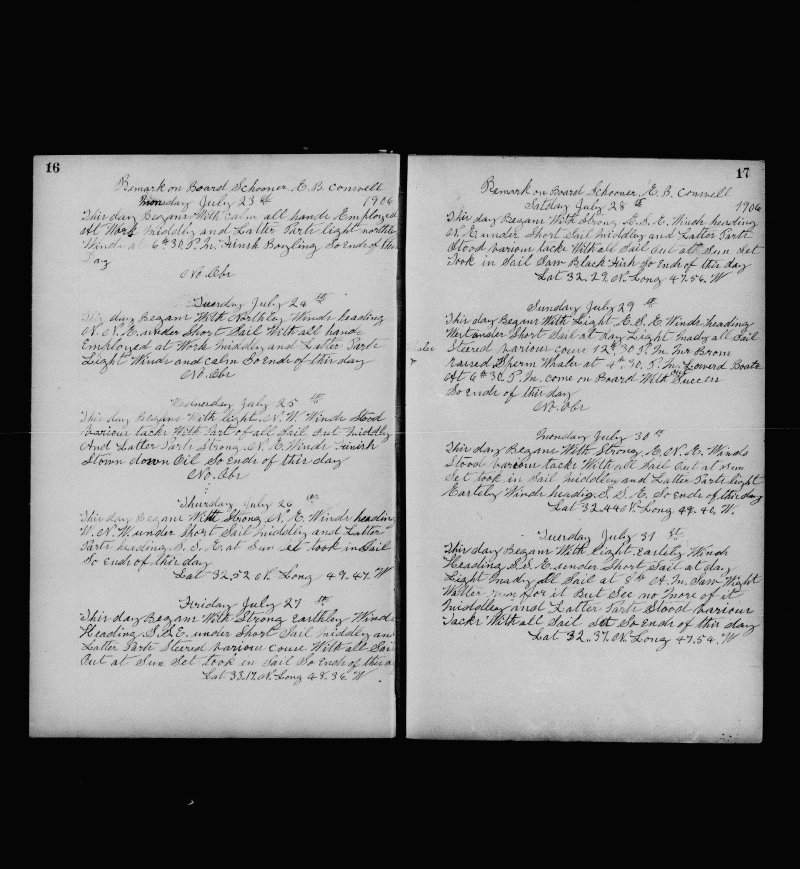 16
Remark on Board Schooner E. B. Conwell
Monday July 23th 1906
This day Begans With calm all hands Employed
At Work middley and Latter Parts light northley
Winds at 6th30. P. M. Finsh Boyling So Ends of this
Day
No. Obr
Tuesday July 24 th
This day Began With Northley Winds heading
N. N. E. under Short Sail With all hands
Employed at Work middley and Latter Parts
Light Winds and calm So Ends of this day
No. Obr
Wednesday July 25 th
This day Begans With light. N. W Winds Stood
various tacks With Part of all Sail out middley
And Latter Parts Strong. N. E. Winds Finish
Stown down Oil So Ends of this day
No. Obr
Thursday July 26 th
This day Begans With Strong. N. E. Winds heading
W. N. W. under Short Sail middley and Latter
Parts heading. S. S. E. at Sun set took in Sail
So Ends of this day
Lat 32.52 N. Long 49.47. W
Friday July 27 th
This day Began With Strong Earthley Winds
Heading S. S. E. under Short Sail middley and
Latter Parts Steered various couse With all Sail
Out at Sun Set took in Sail So Ends of this
Lat 33.17. N. Long 48.36. W
17
Remark on Board Schooner E. B. Conwell
Satday July 28 th 1906
This day Began With Strong E. S. E. Winds heading
N. E. under Short Sail middley and Latter Parts
Stood various tacks With all Sail out at Sun Set
Took in Sail Saw Black Fish So Ends of this day
Lat 32.29. N. Long 47.56. W
Sunday July 29 th
This day Began With Light E. S. E Winds heading
West under Short Sail at day Light mady all Sail
Steered various couse 12th30 P. M. Mr Brown
raised Sperm Whales at 4th30. P. M. Lowerd Boats
At 6th30. P. M. come on Board With out Success
So Ends of this day
No. Obr
Monday July 30 th
This day Began With Strong E. N. E. Winds
Stood various tacks With all Sail Out at Sun
Set took in Sail middley and Latter Parts light
Earteley Winds heading. S. S. E. So Ends of this day
Lat 32.44 N. Long 49.40. W.
Tuesday July 31 st
This day Began With Light. Earteley Winds
Heading S. S. E. under Short Sail at day
Light mady all Sail at 8th A. M. Saw Wight
Watter run for it But See no more of it
Middley and Latter Parts Stood various
Tacks With all Sail Set So Ends of this day
Lat 32.37. N. Long 47.54. W